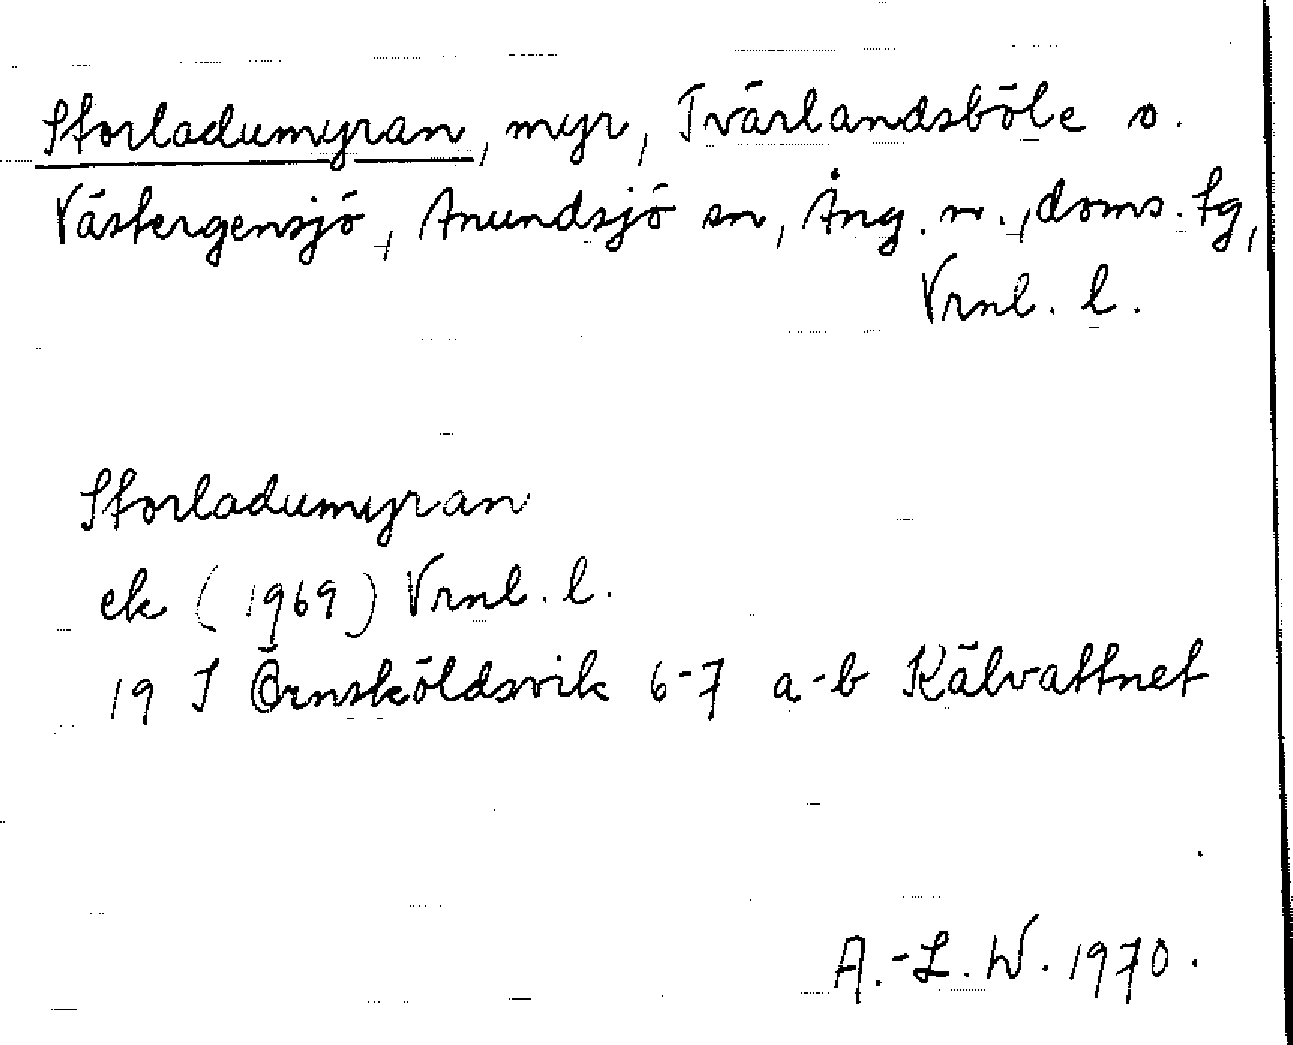 Storladumyran, myr, Tvärlandsböle o.
Västergensjö, Anundsjö sn, Ång. n., doms. tg,
Vrnl. l.
Storladumyran
ek (1969) Vrnl. l.
19 J Örnsköldsvik 6-7 a-b Kälvattnet
A.-L. W. 1970.